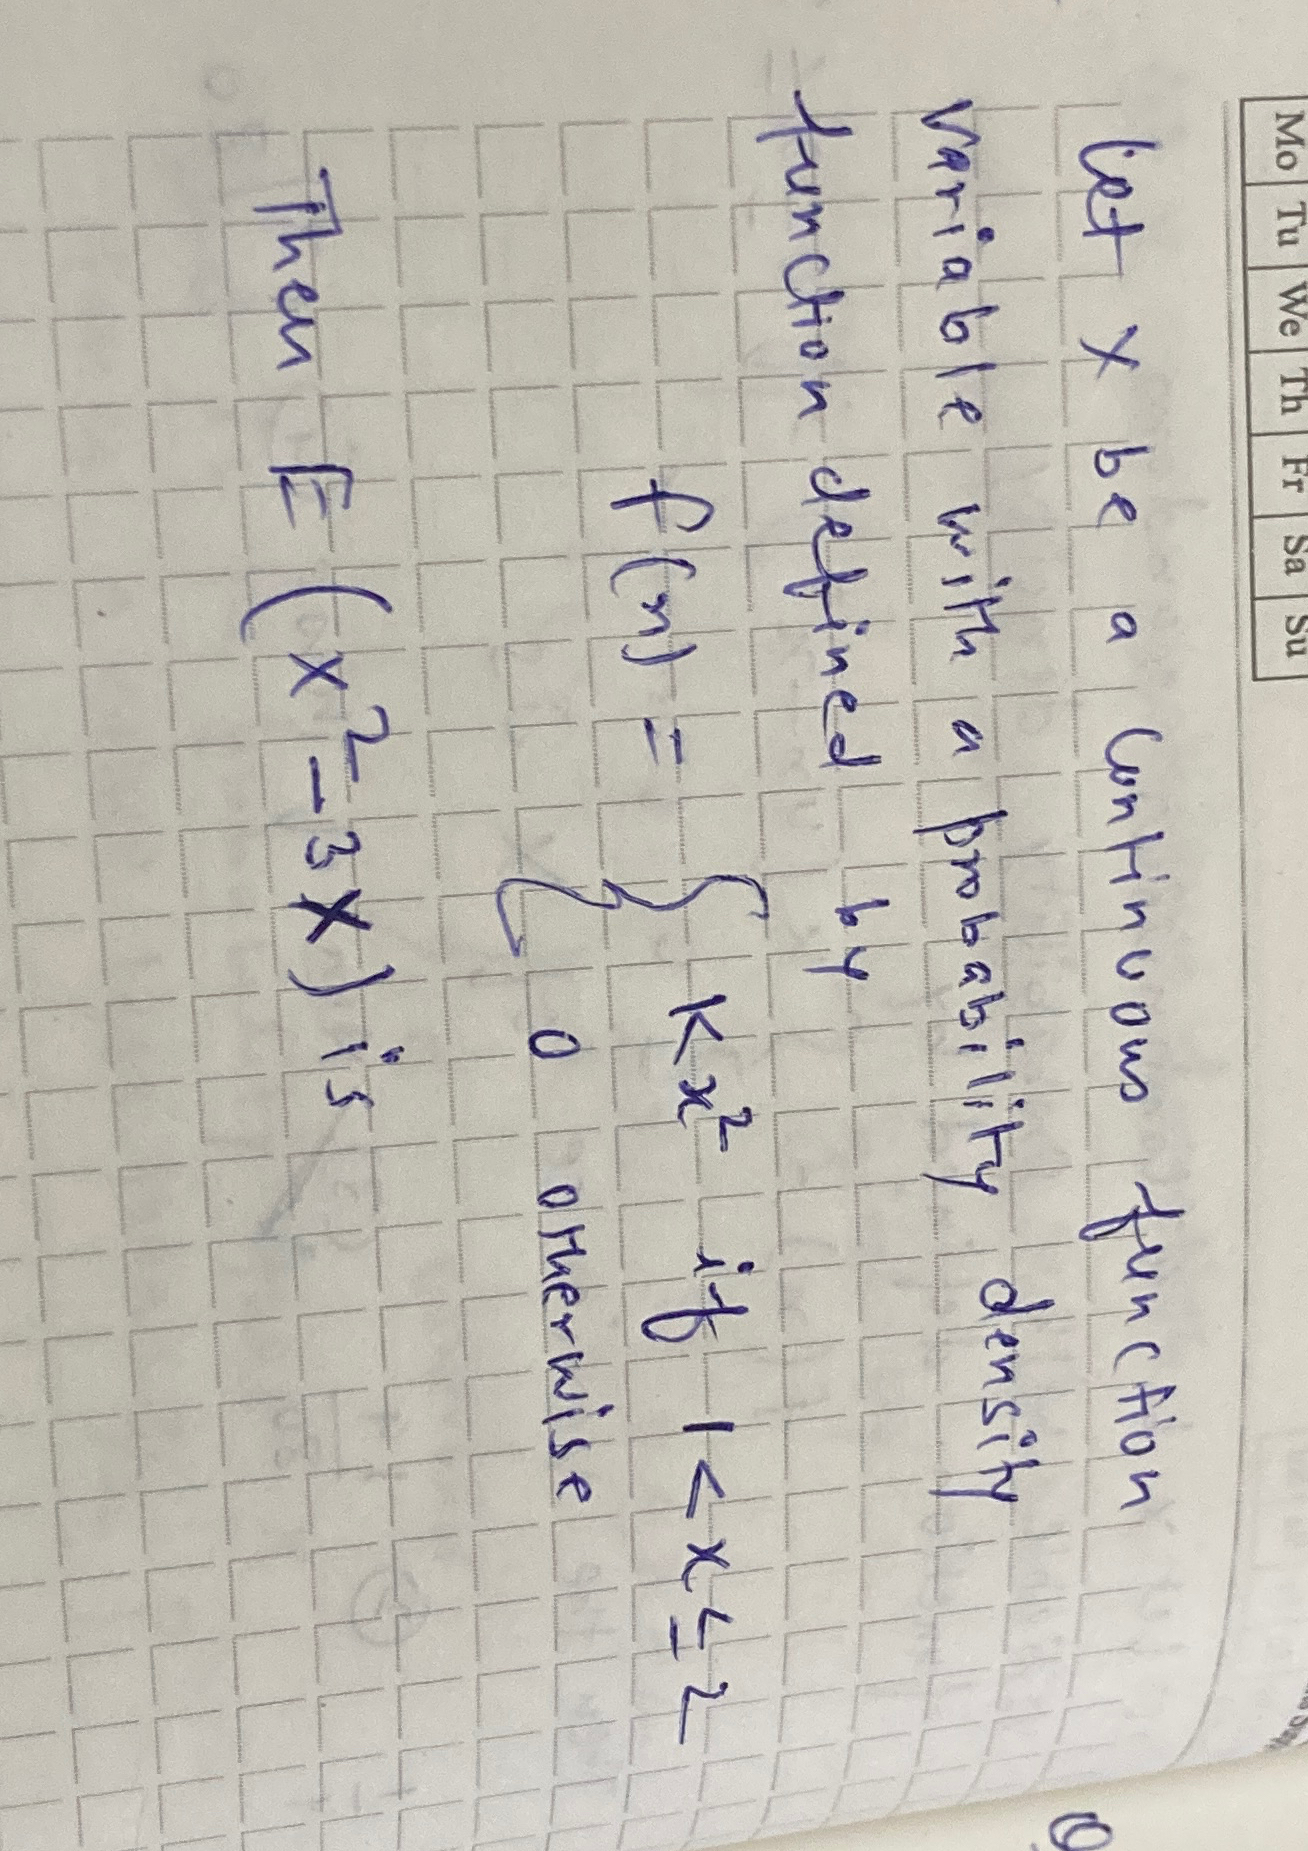 Mo Tu We Th Fr Sa Su
Let X be a continuous function
variable with a probability density
function defined by
f(n) = { Kx² if 1 < x ≤ 2
0 otherwise
Then E (X² - 3X) is